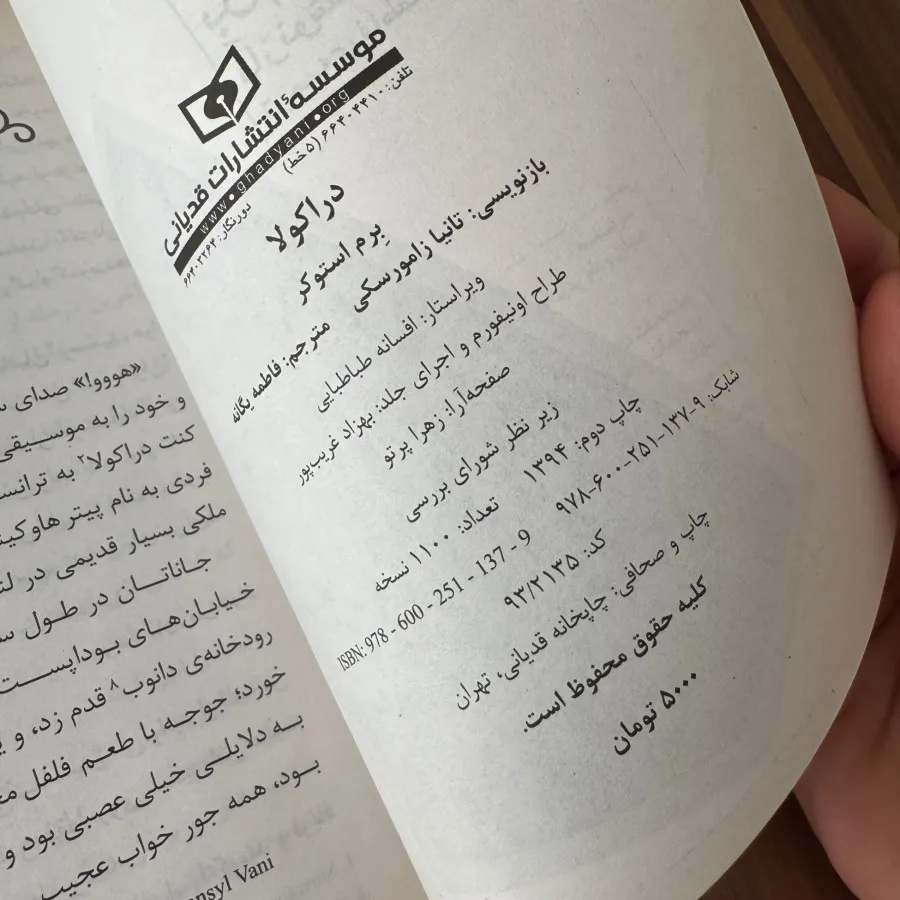 موسسهٔ انتشارات قدیانی
www.ghadyani.org
تلفن: ۶۶۴۰۴۴۱۰ (۵ خط)
دورنگار: ۶۶۴۰۳۲۶۴
دراکولا
بِرم استوکر
بازنویسی: تانیا زامورسکی
مترجم: فاطمه یگانه
ویراستار: افسانه طباطبایی
طراح اونیفورم و اجرای جلد: بهزاد غریب‌پور
صفحه‌آرا: زهرا پرتو
زیر نظر شورای بررسی
چاپ دوم: ۱۳۹۴
تعداد: ۱۱۰۰ نسخه
شابک: ۹-۱۳۷-۲۵۱-۶۰۰-۹۷۸
ISBN: 978 - 600 - 251 - 137 - 9
کد: ۹۳/۲۱۳۵
چاپ و صحافی: چاپخانه قدیانی، تهران
کلیه حقوق محفوظ است.
۵۰۰۰ تومان
«هووو!» صدای
و خود را به موسیقی
کنت دراکولا۲ به
فردی به نام پیتر
ملکی بسیار قدیمی در
جاناتان در طول
خیابان‌های بوداپست
رودخانه‌ی دانوب۸ قدم زد، و
خورد؛ جوجه با طعم فلفل
به دلایلی خیلی عصبی بود و
بود، همه جور خواب عجیب
Vani